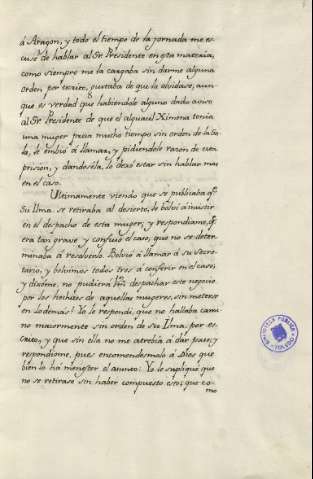 á Aragon, y todo el tiempo de la jornada me es-
cusé de hablar al Sr. Presidente en esta materia,
como siempre me la cargaba sin darme alguna
orden por escrito, gustaba de que la olvidase, aun
que es verdad que habiendole alguno dado aviso
al Sr. Presidente de que el alguacil Ximena tenia
una muger presa mucho tiempo sin orden de la
le embió á llamar, y pidiendole razon de esta
prision, y dandosela, lo dexó estar sin hablar mas
en el caso.
Ultimamente viendo que se publicaba qe.
Su Ilma. se retiraba al desierto, le bolví á insistir
en el despacho de esta muger, y respondiome, qe.
era tan grave y confuso el caso, que no se deter-
minaba á resolverlo. Bolvió á llamar á su Secre-
tario, y bolvimos todos tres á conferir en el caso;
y dixome, no pudiera Vm. despachar este negocio
por los hechizos de aquellas mugeres, sin meterse
en lo demás? Yo le respondí, que no hallaba cami-
no mayormente sin orden de Su Ilma. por es-
crito, y que sin ella no me atrebia á dar paso; y
respondiome, pues encomendemoslo á Dios que
bien lo há menester el asunto: Yo le supliqué que
no se retirase sin haber compuesto esto; que co-
mo
BIBLIOTECA PUBLICA
TOLEDO